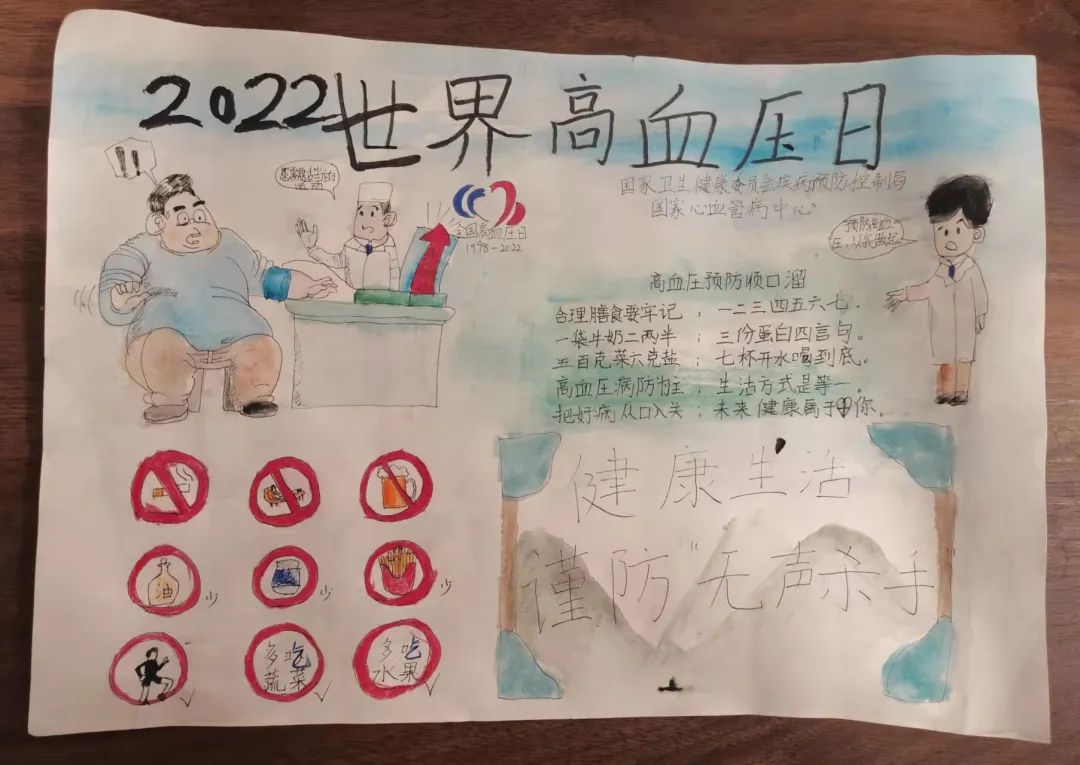 2022世界高血压日
!!
国家卫生健康委员会疾病预防控制局
国家心血管病中心
全国高血压日
1998-2022
预防高血
压,从我做起
高血压预防顺口溜
合理膳食要牢记,一二三四五六七.
一袋牛奶二两半;三份蛋白四言句。
五百克菜六克盐;七杯开水喝到底。
高血压病防为主,生活方式是等一。
把好病从口入关;未来健康属于你。
健康生活
谨防"无声杀手"
油 少
少
少
多吃
蔬菜
多吃
水果